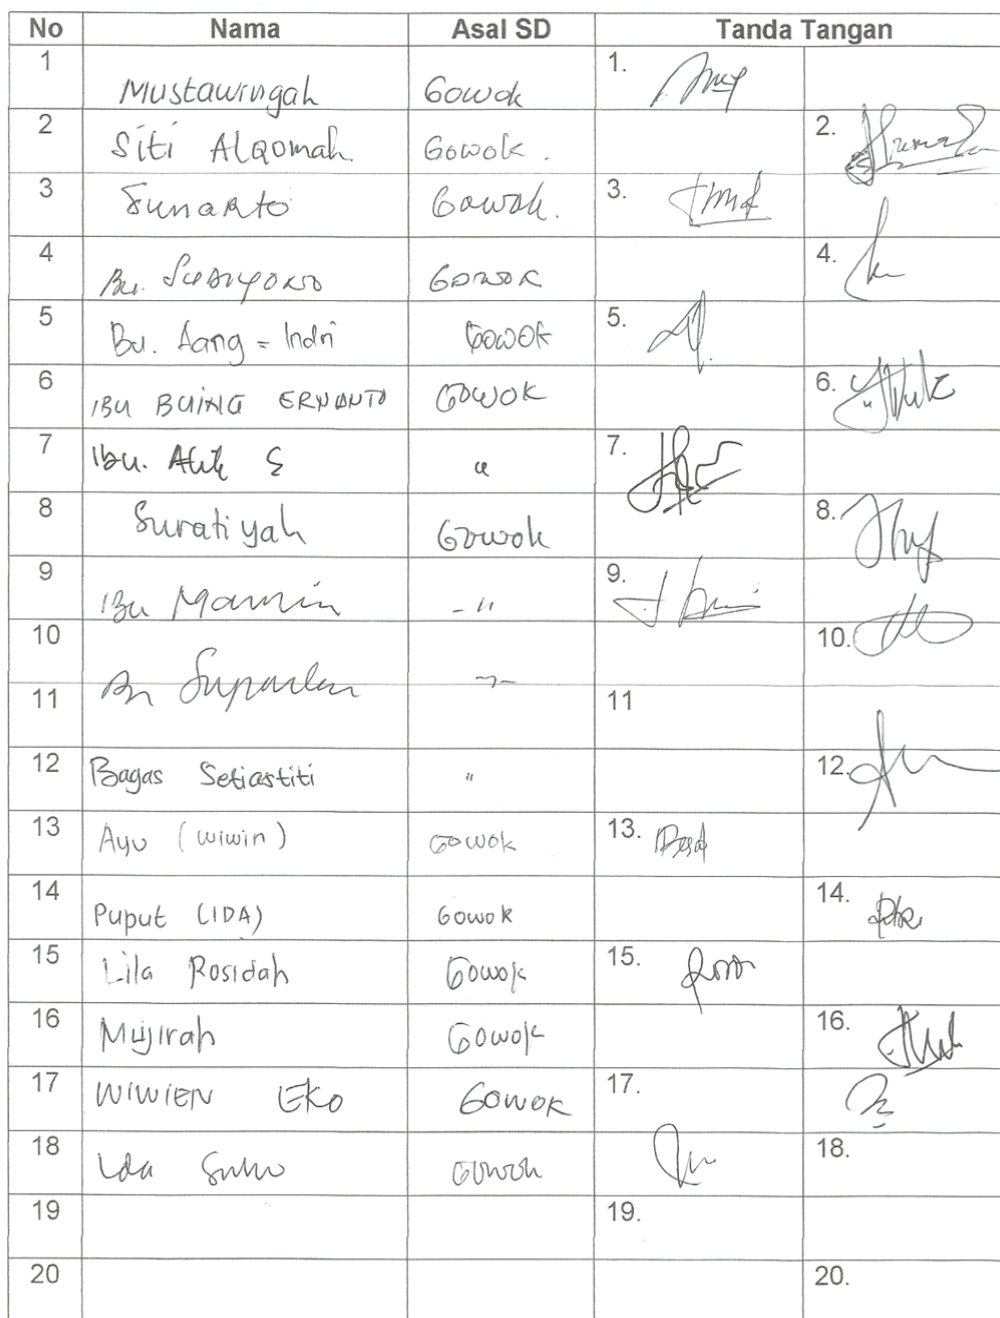 No Nama Asal SD Tanda Tangan
1 Mustawingah Gowok 1.
2 Siti Alqomah. Gowok . 2.
3 Sunarto Gowok. 3.
4 Bu. Suwiyono Gowok 4.
5 Bu. Aang = Indri Gowok 5.
6 IBU BUING ERNANTO GOWOK 6.
7 Ibu. Atik S " 7.
8 Suratiyah Gowok 8.
9 Ibu Mamin - " 9.
10 Suparlan 10.
11 11
12 Bagas Setiastiti " 12.
13 Ayu (wiwin) Gowok 13.
14 Puput (IDA) Gowok 14.
15 Lila Rosidah Gowok 15.
16 Mujirah Gowok 16.
17 WIWIEN EKO GOWOK 17.
18 Ida Gowok 18.
19 19.
20 20.